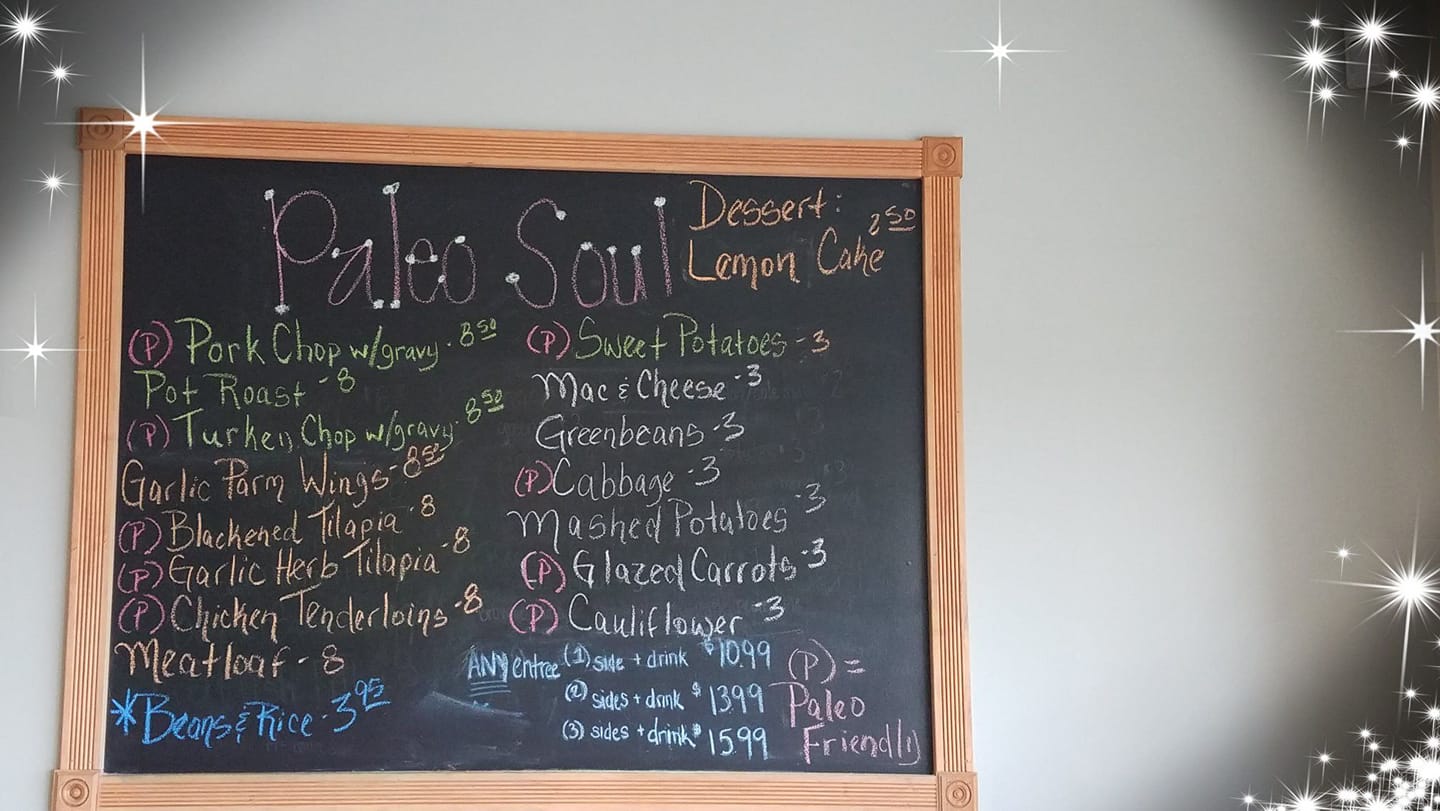 Paleo Soul
Dessert:
Lemon Cake 2 50
(P) Pork Chop w/gravy - 8 50
Pot Roast - 8
(P) Turkey Chop w/gravy - 8 50
Garlic Parm Wings - 8 50
(P) Blackened Tilapia - 8
(P) Garlic Herb Tilapia - 8
(P) Chicken Tenderloins - 8
Meatloaf - 8
*Beans & Rice - 3 95
(P) Sweet Potatoes - 3
Mac & Cheese - 3
Greenbeans - 3
(P) Cabbage - 3
Mashed Potatoes - 3
(P) Glazed Carrots - 3
(P) Cauliflower - 3
ANY entree (1) side + drink $10.99
(2) sides + drink $13.99
(3) sides + drink $15.99
(P) =
Paleo
Friendly